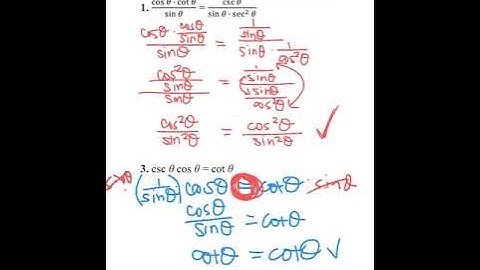 1. cosθ · cotθ / sinθ = cscθ / sinθ · sec²θ
cosθ · cosθ/sinθ / sinθ = 1/sinθ / sinθ · 1/cos²θ
cos²θ/sinθ / sinθ = 1/sinθ / sinθ/cos²θ
cos²θ / sin²θ = cos²θ / sin²θ ✓
3. csc θ cos θ = cot θ
(1/sinθ) cosθ = cotθ · sinθ
cosθ / sinθ = cotθ
cotθ = cotθ ✓